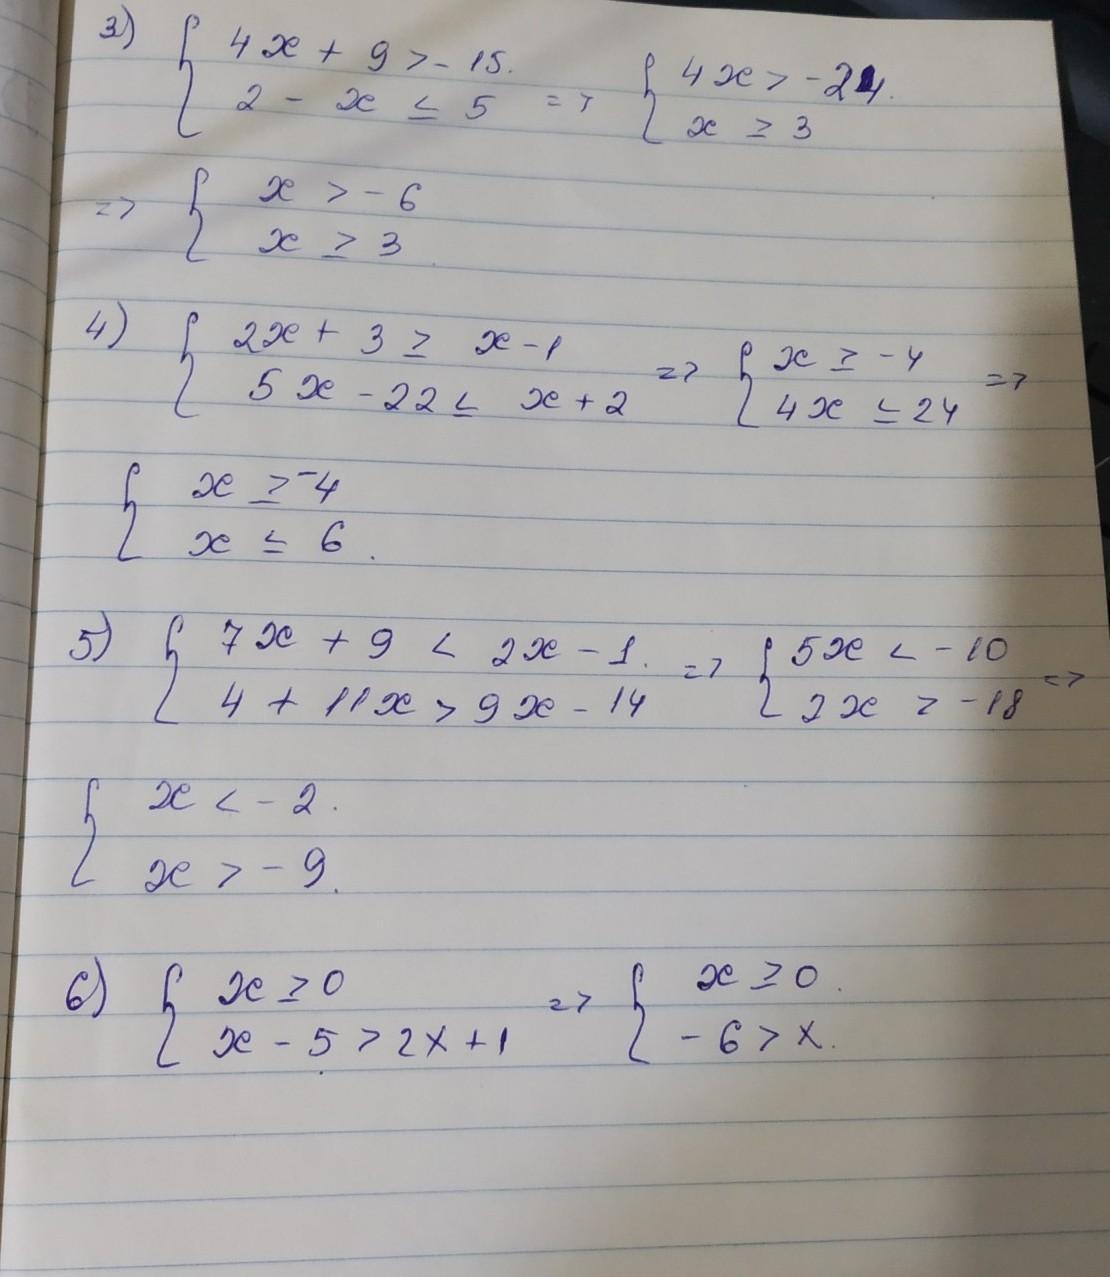 3) { 4x + 9 > - 15.
2 - x ≤ 5 => { 4x > -24.
x ≥ 3
=> { x > - 6
x ≥ 3
4) { 2x + 3 ≥ x - 1
5x - 22 ≤ x + 2 => { x ≥ -4
4x ≤ 24 =>
{ x ≥ -4
x ≤ 6.
5) { 7x + 9 < 2x - 1.
4 + 11x > 9x - 14 => { 5x < - 10
2x > -18 =>
{ x < - 2.
x > - 9.
6) { x ≥ 0
x - 5 > 2x + 1 => { x ≥ 0.
- 6 > x.